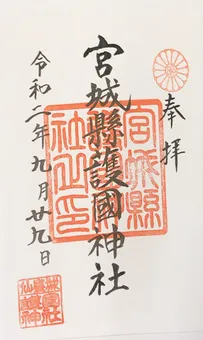 奉拝
宮城縣護國神社
宮城縣護國神社之印
令和二年九月廿九日